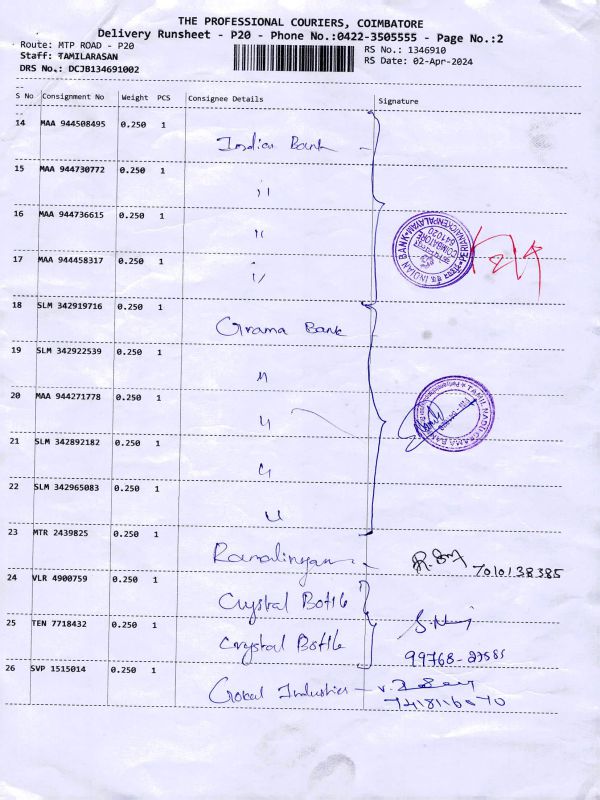 THE PROFESSIONAL COURIERS, COIMBATORE
Delivery Runsheet - P20 - Phone No.:0422-3505555 - Page No.:2
Route: MTP ROAD - P20
RS No.: 1346910
Staff: TAMILARASAN
RS Date: 02-Apr-2024
DRS No.: DCJB134691002
S No Consignment No Weight PCS Consignee Details Signature
14 MAA 944508495 0.250 1 Indian Bank
15 MAA 944730772 0.250 1 "
16 MAA 944736615 0.250 1 "
17 MAA 944458317 0.250 1 "
INDIAN BANK
COIMBATORE
641020
18 SLM 342919716 0.250 1 Grama Bank
19 SLM 342922539 0.250 1 "
20 MAA 944271778 0.250 1 "
TAMIL NADU GRAMA BANK
21 SLM 342892182 0.250 1 "
22 SLM 342965083 0.250 1 "
23 MTR 2439825 0.250 1 Ramalingam 7010138385
24 VLR 4900759 0.250 1 Crystal Botle
25 TEN 7718432 0.250 1 Crystal Botle
99768-
26 SVP 1515014 0.250 1 Gobal Industries